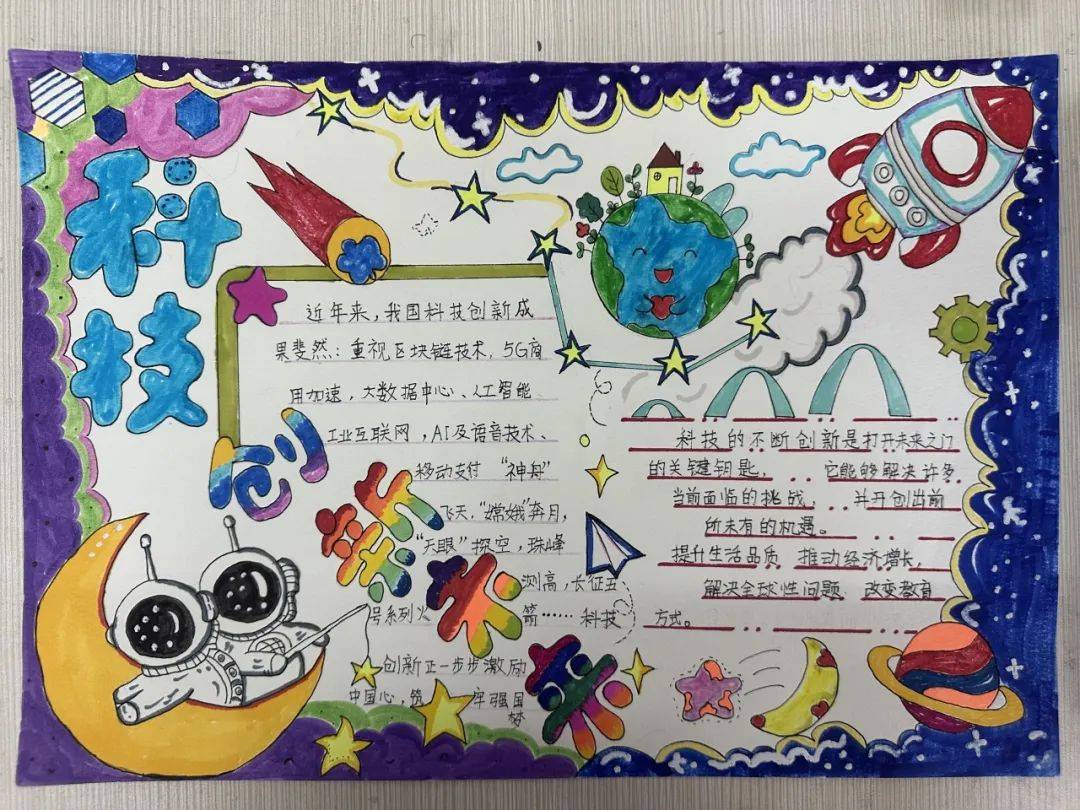 科技
创新未来
近年来,我国科技创新成
果斐然:重视区块链技术,5G商
用加速,大数据中心、人工智能、
工业互联网,AI及语音技术、
移动支付 “神舟”
飞天,“嫦娥”奔月,
“天眼”探空,珠峰
测高,长征五、
号系列火 箭……科技
创新正一步步激励
中国心,筑 牢强国
梦
科技的不断创新是打开未来之门
的关键钥匙, 它能够解决许多
当前面临的挑战, 并开创出前
所未有的机遇。
提升生活品质 推动经济增长,
解决全球性问题 改变教育
方式。